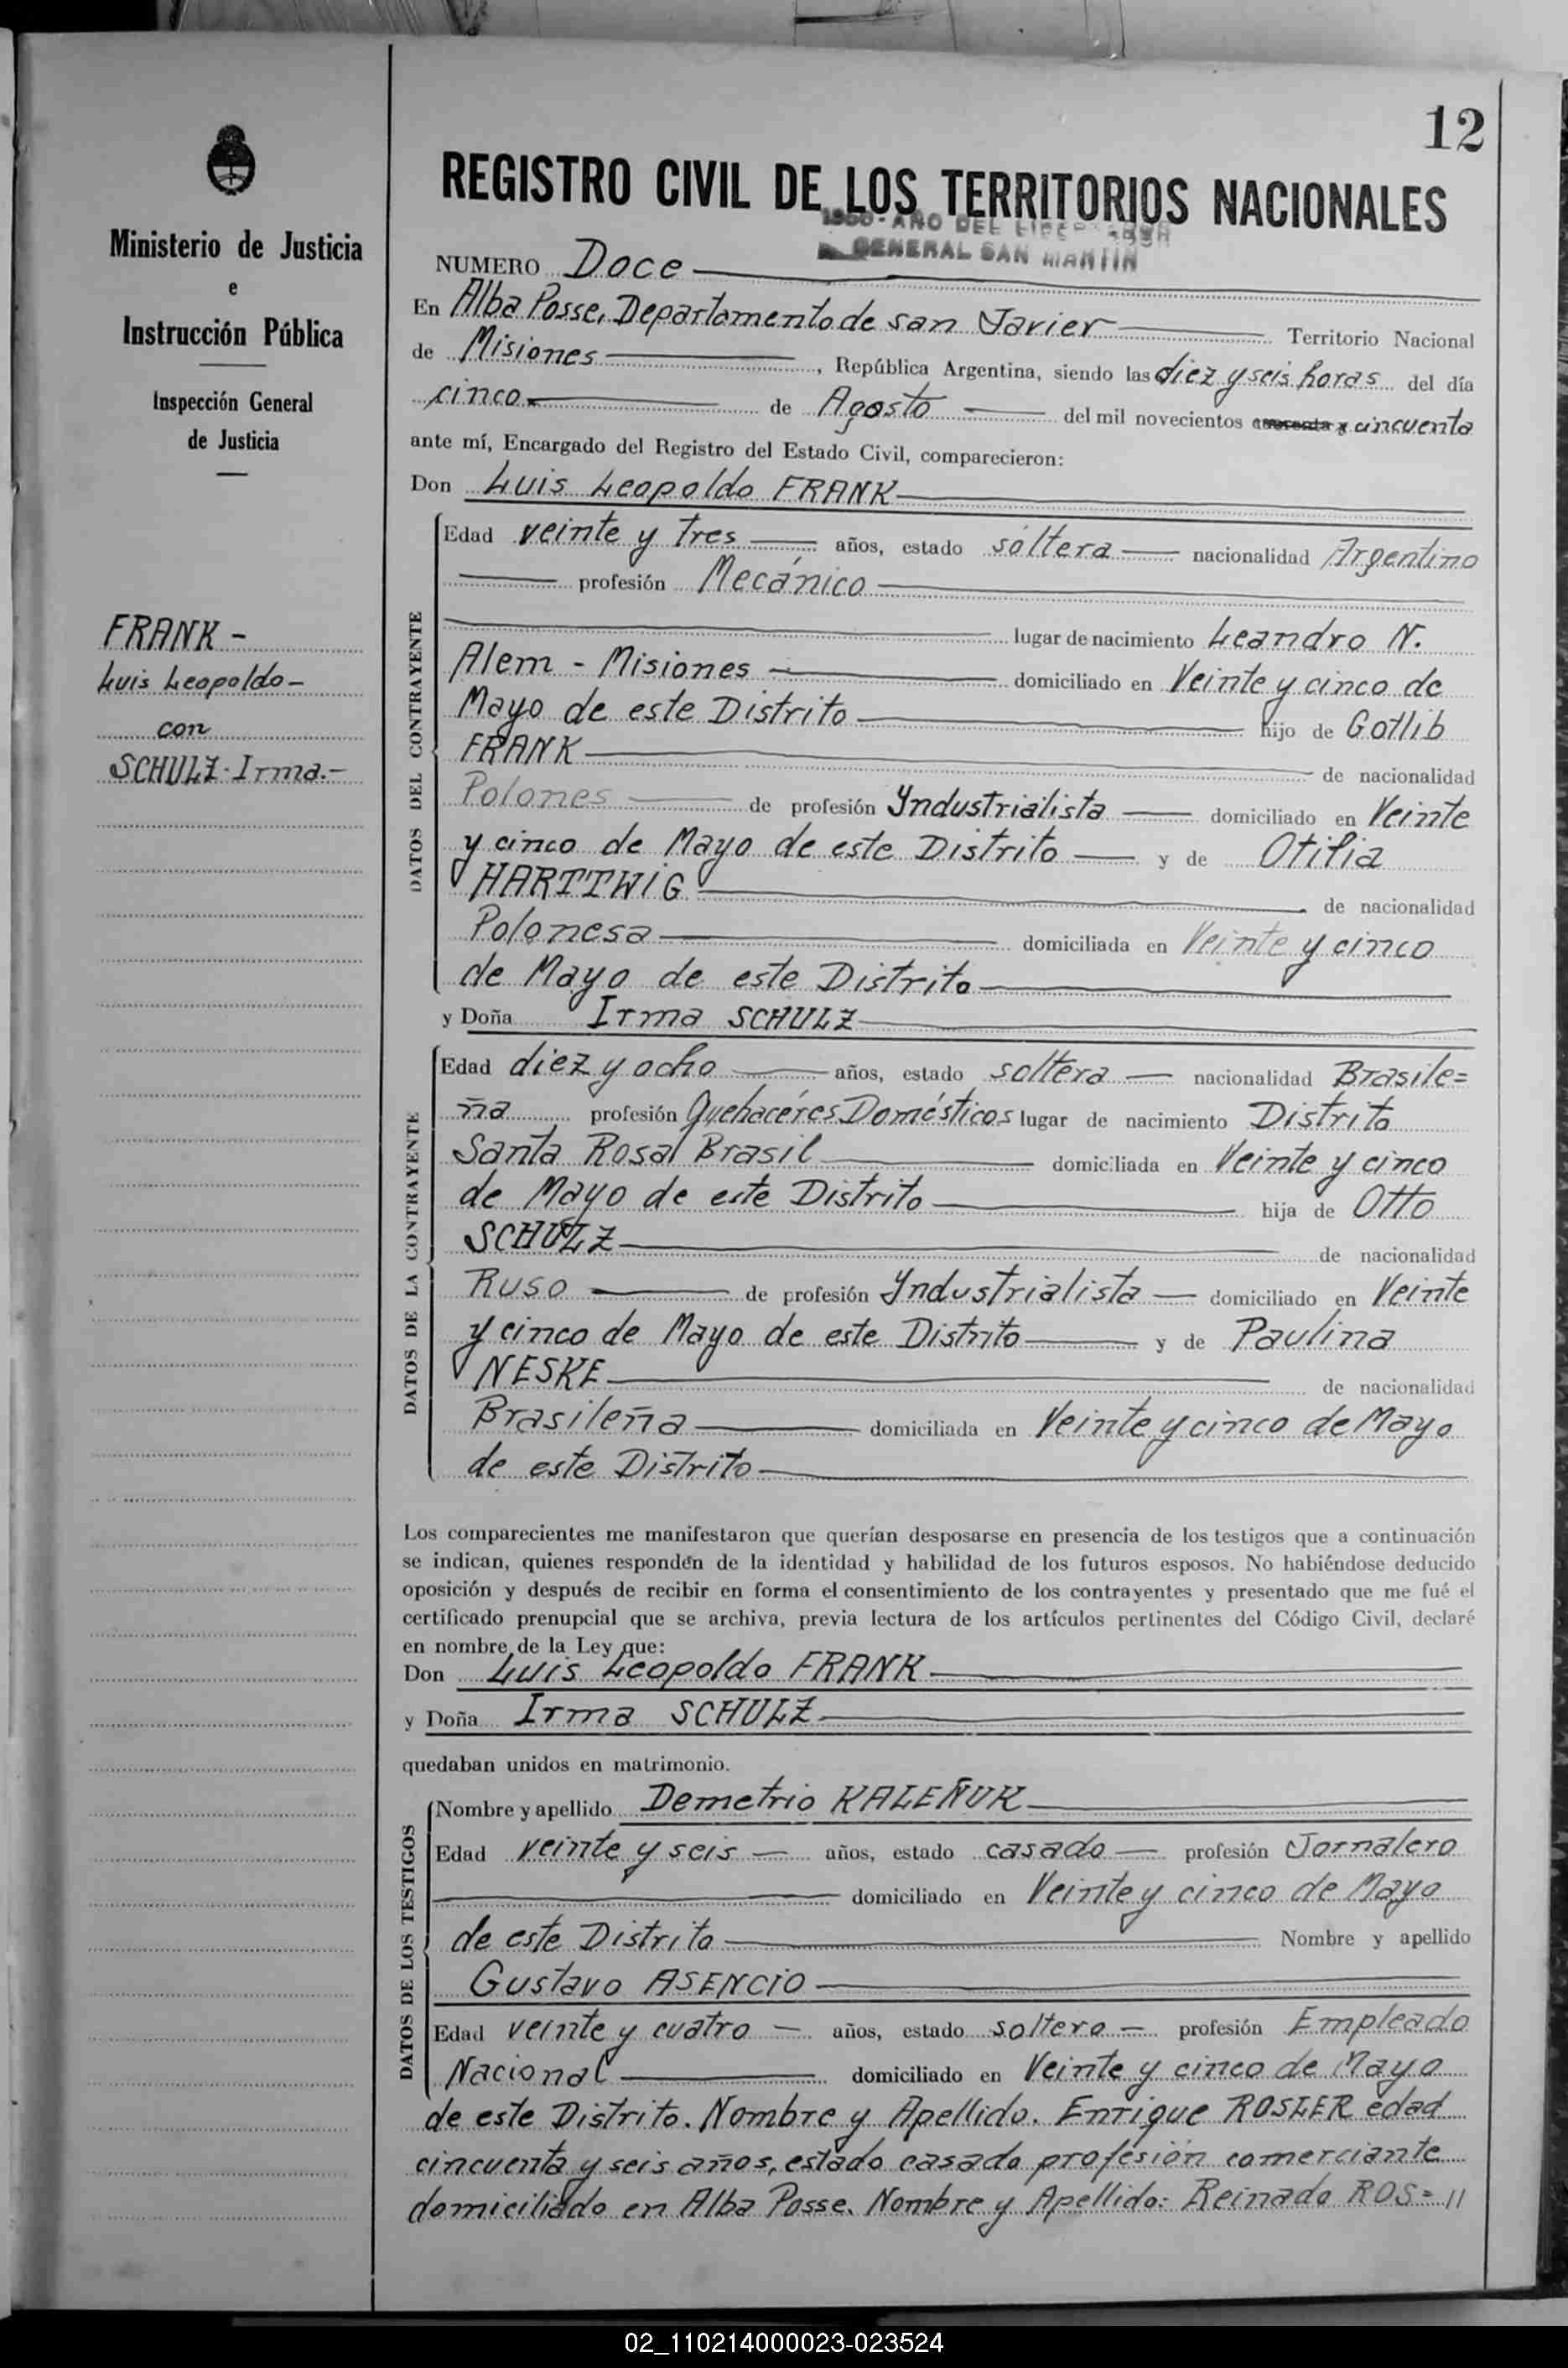 12
REGISTRO CIVIL DE LOS TERRITORIOS NACIONALES
1950 - AÑO DEL LIBERTADOR
GENERAL SAN MARTIN
Ministerio de Justicia
e
Instrucción Pública
Inspección General
de Justicia
FRANK -
Luis Leopoldo -
con
SCHULZ - Irma.-
NUMERO Doce
En Alba Posse, Departamento de san Javier Territorio Nacional
de Misiones, República Argentina, siendo las diez y seis horas del día
cinco de Agosto del mil novecientos cincuenta
ante mí, Encargado del Registro del Estado Civil, comparecieron:
Don Luis Leopoldo FRANK
DATOS DEL CONTRAYENTE
Edad veinte y tres años, estado soltera nacionalidad Argentino
profesión Mecánico
lugar de nacimiento Leandro N.
Alem - Misiones domiciliado en Veinte y cinco de
Mayo de este Distrito hijo de Gotlib
FRANK de nacionalidad
Polones de profesión Yndustrialista domiciliado en Veinte
y cinco de Mayo de este Distrito y de Otilia
HARTTWIG de nacionalidad
Polonesa domiciliada en Veinte y cinco
de Mayo de este Distrito
y Doña Irma SCHULZ
DATOS DE LA CONTRAYENTE
Edad diez y ocho años, estado soltera nacionalidad Brasile=
ña profesión Quehacéres Domésticos lugar de nacimiento Distrito
Santa Rosa Brasil domiciliada en Veinte y cinco
de Mayo de este Distrito hija de Otto
SCHULZ de nacionalidad
Ruso de profesión Yndustrialista domiciliado en Veinte
y cinco de Mayo de este Distrito y de Paulina
NESKE de nacionalidad
Brasileña domiciliada en Veinte y cinco de Mayo
de este Distrito
Los comparecientes me manifestaron que querían desposarse en presencia de los testigos que a continuación
se indican, quienes responden de la identidad y habilidad de los futuros esposos. No habiéndose deducido
oposición y después de recibir en forma el consentimiento de los contrayentes y presentado que me fué el
certificado prenupcial que se archiva, previa lectura de los artículos pertinentes del Código Civil, declaré
en nombre de la Ley que:
Don Luis Leopoldo FRANK
y Doña Irma SCHULZ
quedaban unidos en matrimonio.
DATOS DE LOS TESTIGOS
Nombre y apellido Demetrio KALEÑUK
Edad veinte y seis años, estado casado profesión Jornalero
domiciliado en Veinte y cinco de Mayo
de este Distrito Nombre y apellido
Gustavo ASENCIO
Edad veinte y cuatro años, estado soltero profesión Empleado
Nacional domiciliado en Veinte y cinco de Mayo
de este Distrito. Nombre y Apellido. Enrique ROSLER edad
cincuenta y seis años, estado casado profesión comerciante
domiciliado en Alba Posse. Nombre y Apellido: Reinado ROS= //
02_110214000023-023524